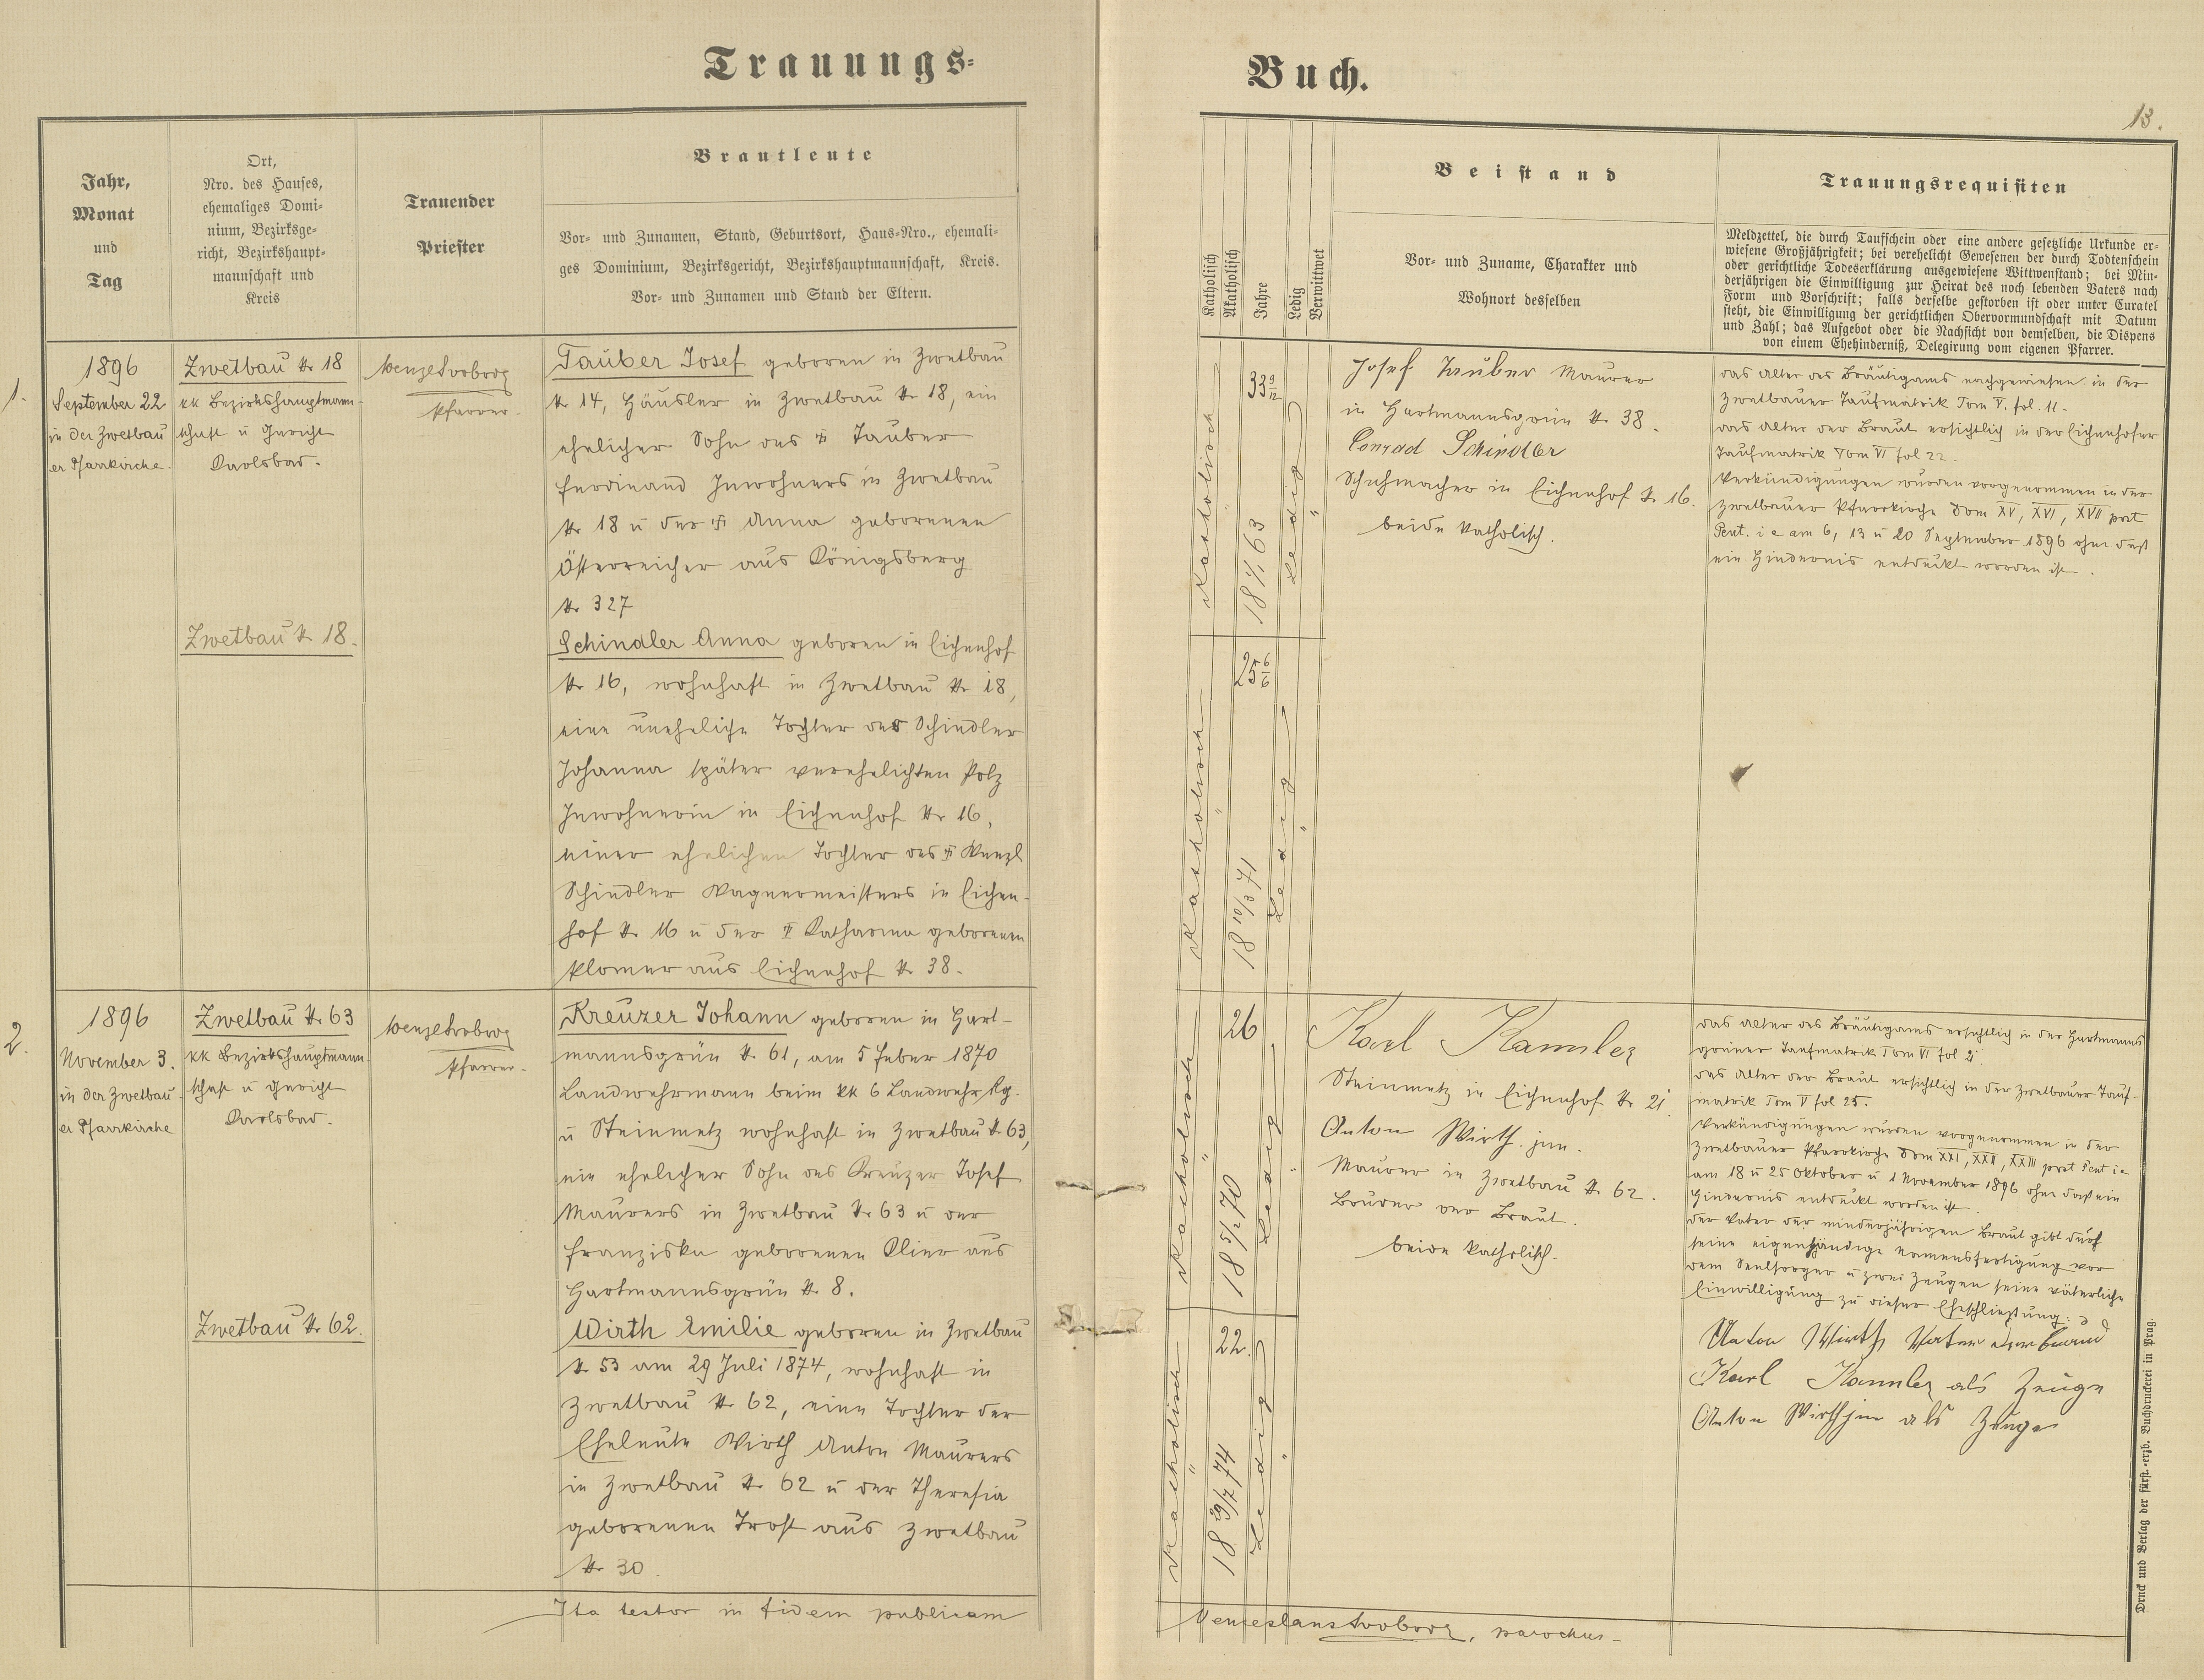 Trauungs-
Buch.
13.
Jahr,
Monat
und
Tag
Ort,
Nro. des Hauses,
ehemaliges Domi-
nium, Bezirksge-
richt, Bezirkshaupt-
mannschaft und
Kreis
Trauender
Priester
Brautleute
Vor- und Zunamen, Stand, Geburtsort, Haus-Nro., ehemali-
ges Dominium, Bezirksgericht, Bezirkshauptmannschaft, Kreis.
Vor- und Zunamen und Stand der Eltern.
Katholisch
Akatholisch
Jahre
Ledig
Verwittwet
Beistand
Vor- und Zuname, Charakter und
Wohnort desselben
Trauungsrequisiten
Meldzettel, die durch Taufschein oder eine andere gesetzliche Urkunde er-
wiesene Großjährigkeit; bei verehelicht Gewesenen der durch Todtenschein
oder gerichtliche Todeserklärung ausgewiesene Wittwenstand; bei Min-
derjährigen die Einwilligung zur Heirat des noch lebenden Vaters nach
Form und Vorschrift; falls derselbe gestorben ist oder unter Curatel
steht, die Einwilligung der gerichtlichen Obervormundschaft mit Datum
und Zahl; das Aufgebot oder die Nachsicht von demselben, die Dispens
von einem Ehehinderniß, Delegirung vom eigenen Pfarrer.
1.
1896
September 22
in der Zwetbau
er Pfarrkirche.
Zwetbau Nr 18
kk Bezirkshauptmann-
schaft u Gericht
Karlsbad.
Zwetbau Nr 18.
Wenzel
Pfarrer.
Tauber Josef geboren in Zwetbau
Nr 14, Häusler in Zwetbau Nr 18, ein
ehelicher Sohn des † Tauber
Ferdinand Inwohners in Zwetbau
Nr 18 u der † Anna geborenen
Österreicher aus Königsberg
Nr 327
Schindler Anna geboren in Eichenhof
Nr 16, wohnhaft in Zwetbau Nr 18,
eine uneheliche Tochter der Schindler
Johanna später verehelichten Polz
Inwohnerin in Eichenhof Nr 16,
einer ehelichen Tochter des † Wenzl
Schindler Wagnermeisters in Eichen-
hof Nr 16 u der † Katharina geborenen
Klomer aus Eichenhof Nr 38.
Katholisch
"
33 9/12
18 1/1 63
Ledig
"
Katholisch
"
25 6/6
18 10/3 71
Ledig
"
Josef Tauber Maurer
in Hartmannsgrün Nr 38.
Conrad Schindler
Schuhmacher in Eichenhof Nr 16.
beide katholisch.
Das Alter des Bräutigams nachgewiesen in der
Zwetbauer Taufmatrik Tom V. fol. 11.
Das Alter der Braut ersichtlich in der Eichenhofer
Taufmatrik Tom VI fol 22.
Verkündigungen wurden vorgenommen in der
Zwetbauer Pfarrkirche Dom XV, XVI, XVII post
Pent. i e am 6, 13 u 20 September 1896 ohne daß
ein Hindernis entdeckt worden ist.
2.
1896
November 3.
in der Zwetbau
er Pfarrkirche
Zwetbau Nr 63
kk Bezirkshauptmann
schaft u Gericht
Karlsbad.
Zwetbau Nr 62.
Wenzel
Pfarrer.
Kreuzer Johann geboren in Hart-
mannsgrün Nr 61, am 5 Feber 1870
Landwehrmann beim kk 6 Landwehr Rg.
u Steinmetz wohnhaft in Zwetbau Nr 63,
ein ehelicher Sohn des Kreuzer Josef
Maurers in Zwetbau Nr 63 u der
Franziska geborenen Klier aus
Hartmannsgrün Nr 8.
Wirth Emilie geboren in Zwetbau
Nr 53 am 29 Juli 1874, wohnhaft in
Zwetbau Nr 62, eine Tochter der
Eheleute Wirth Anton Maurers
in Zwetbau Nr 62 u der Theresia
geborenen Trost aus Zwetbau
Nr 30.
Katholisch
"
26
18 5/2 70
Ledig
"
Katholisch
"
22.
18 29/7 74
Ledig
"
Karl Kannler
Steinmetz in Eichenhof Nr 21.
Anton Wirth jun.
Maurer in Zwetbau Nr 62.
Bruder der Braut.
beide katholisch.
Das Alter des Bräutigams ersichtlich in der Hartmanns
grüner Taufmatrik Tom VI fol 2.
Das Alter der Braut ersichtlich in der Zwetbauer Tauf-
matrik Tom V fol 25.
Verkündigungen wurden vorgenommen in der
Zwetbauer Pfarrkirche Dom XXI, XXII, XXIII post Pent i e
am 18 u 25 Oktober u 1 November 1896 ohne daß ein
Hindernis entdeckt worden ist.
Der Vater der minderjährigen Braut gibt durch
seine eigenhändige Namensfertigung vor
dem Seelsorger u zwei Zeugen seine väterliche
Einwilligung zu dieser Eheschließung:
Anton Wirth Vater der Braut
Karl Kannler als Zeuge
Anton Wirth jun als Zeuge
Ita testor in fidem publicam
parochus
Druck und Verlag der fürst.-erzb. Buchdruckerei in Prag.